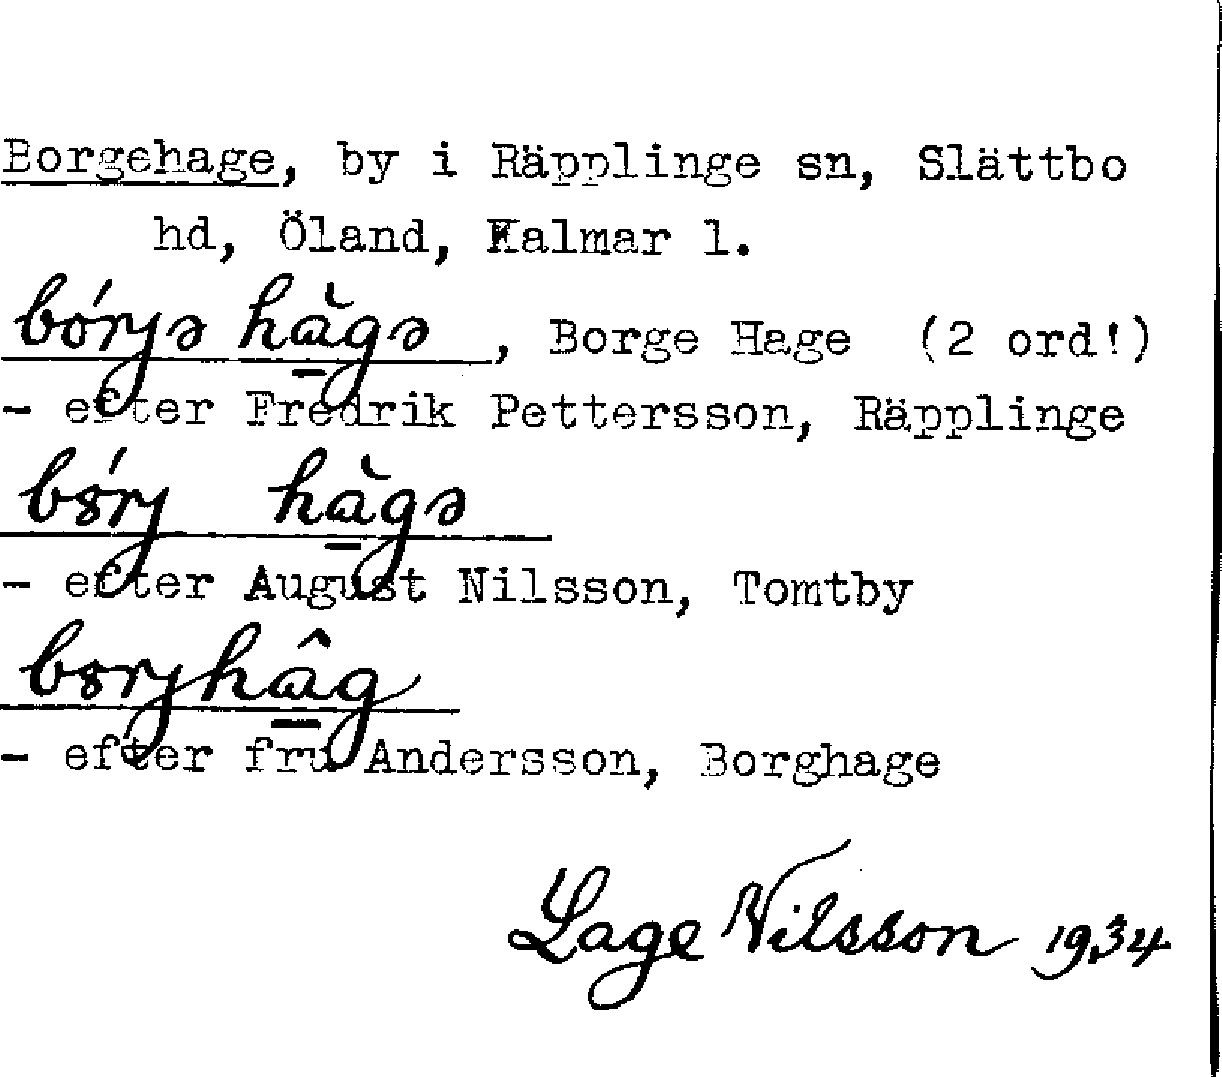 Borgehage, by i Räpplinge sn, Slättbo
hd, Öland, Kalmar l.
bórjə hàgə, Borge Hage (2 ord!)
- efter Fredrik Pettersson, Räpplinge
hàgə
- efter August Nilsson, Tomtby
- efter fru Andersson, Borghage
Lage Nilsson 1934